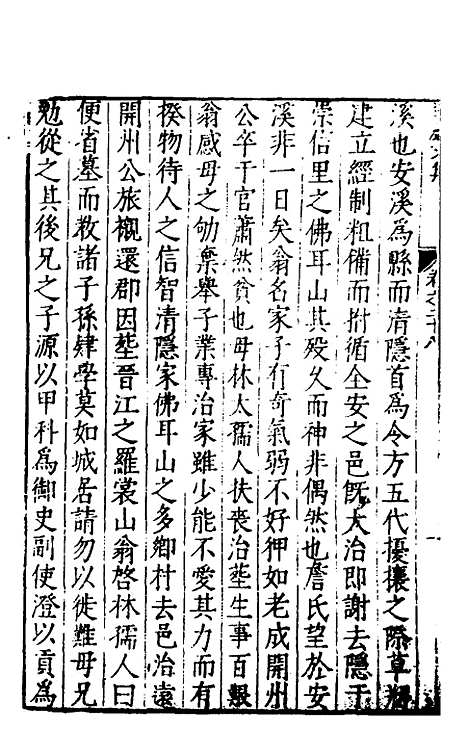 溪也安溪爲縣而清隱首爲令方五代擾攘之際草
建立經制粗備而拊循全安之邑旣大治即謝去隱于
崇信里之佛耳山其殁久而神非偶然也詹氏望於安
溪非一日矣翁名家子有奇氣弱不好狎如老成開州
公卒于官蕭然貧也母林太孺人扶喪治塟生事百艱
翁感母之劬棄舉子業專治家雖少能不愛其力而有
揆物待人之信智清隱家佛耳山之多鄉村去邑治遠
開州公旅櫬還郡因塟晋江之羅裳山翁啓林孺人曰
便省墓而敎諸子孫肄學莫如城居請勿以徙難母兄
勉從之其後兄之子源以甲科爲御史副使澄以貢爲
卷之二十八